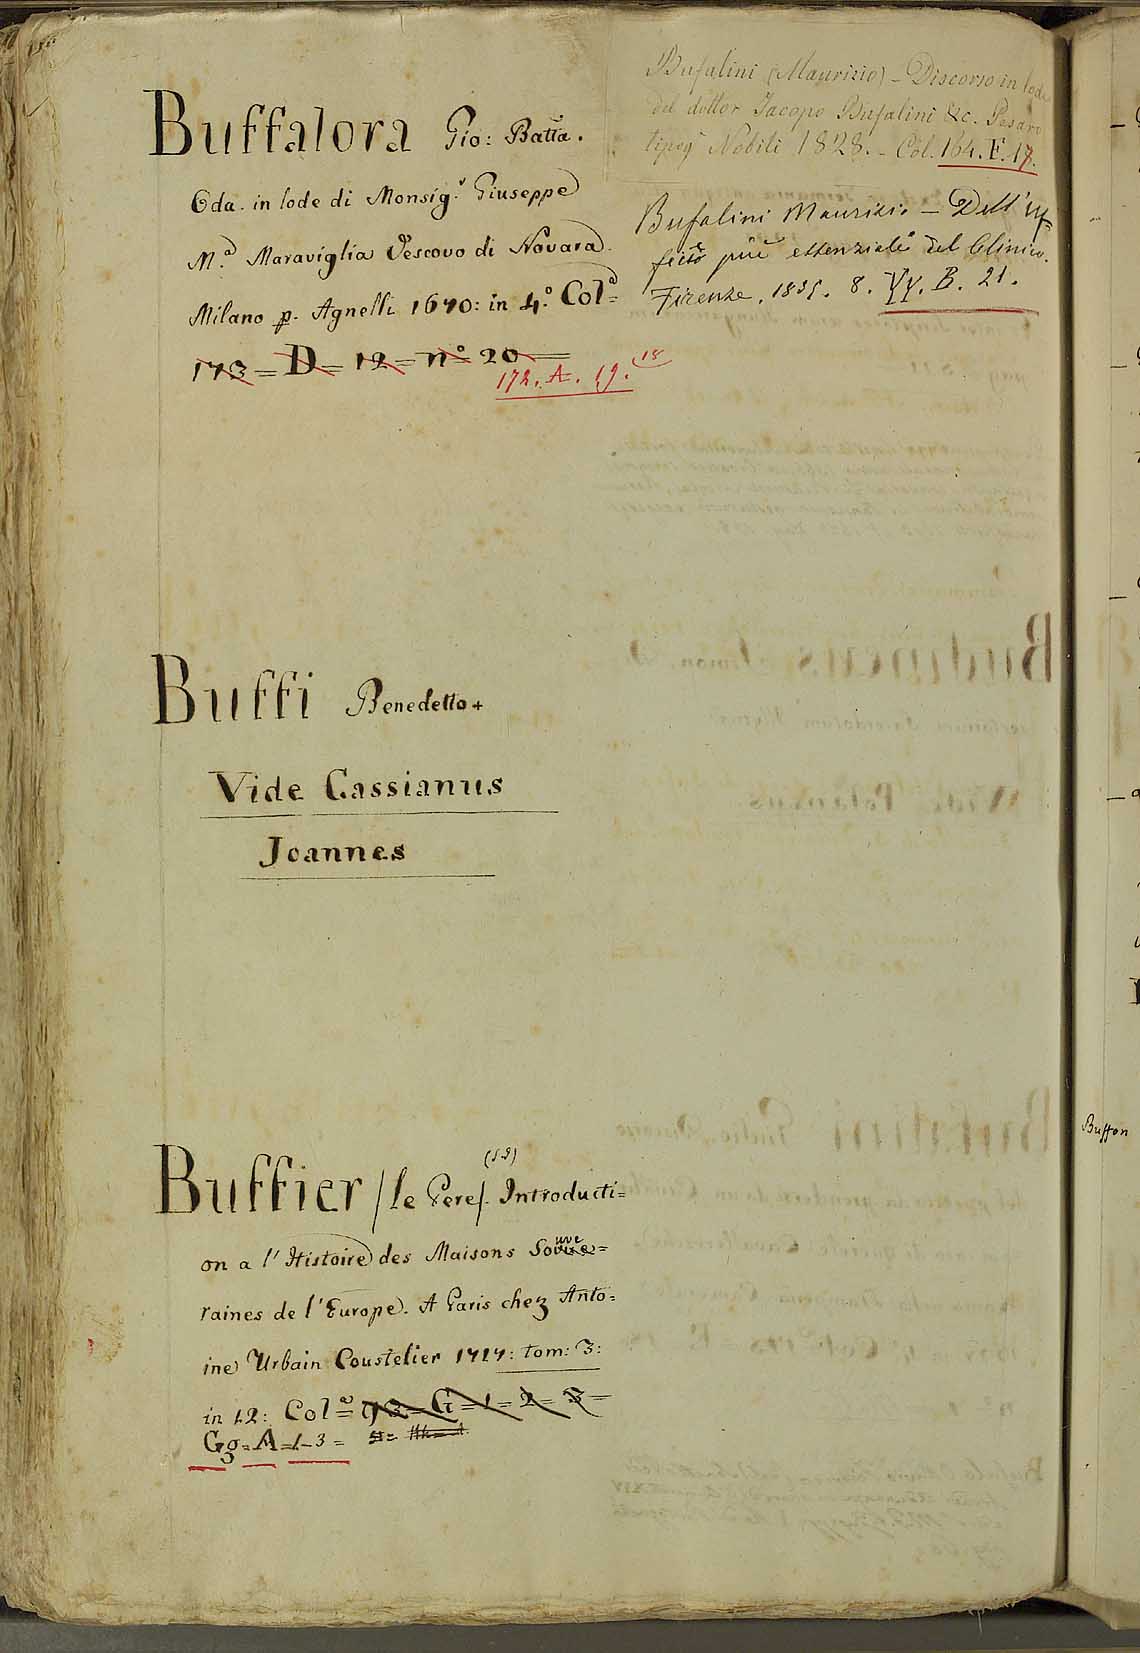 Buffalora Gio: Batta.
Oda in lode di Monsig.r Giuseppe
M.a Maraviglia Vescovo di Novara.
Milano p. Agnelli 1670: in 4.o Col.a
173 = D = 12 = n.o 20 =
172. A. 19. 18
Bufalini (Maurizio) - Discorso in lode
del dottor Jacopo Bufalini &c. Pesaro
tipog Nobili 1828. - Col. 164. F. 17.
Bufalini Maurizio - Dell' uf-
ficio più essenziale del Clinico.
Firenze, 1835. 8. YY. B. 21.
Buffi Benedetto +
Vide Cassianus
Joannes
(S.J)
Buffier / le Pere /. Introducti=
on a l' Histoire des Maisons Souve=
raines de l' Europe. A Paris chez Anto=
ine Urbain Coustelier 1717: tom: 3:
in 12: Col.a = 93 = G = 1 = 2 = 3 =
Gg = A = 1-3 =
Buffon